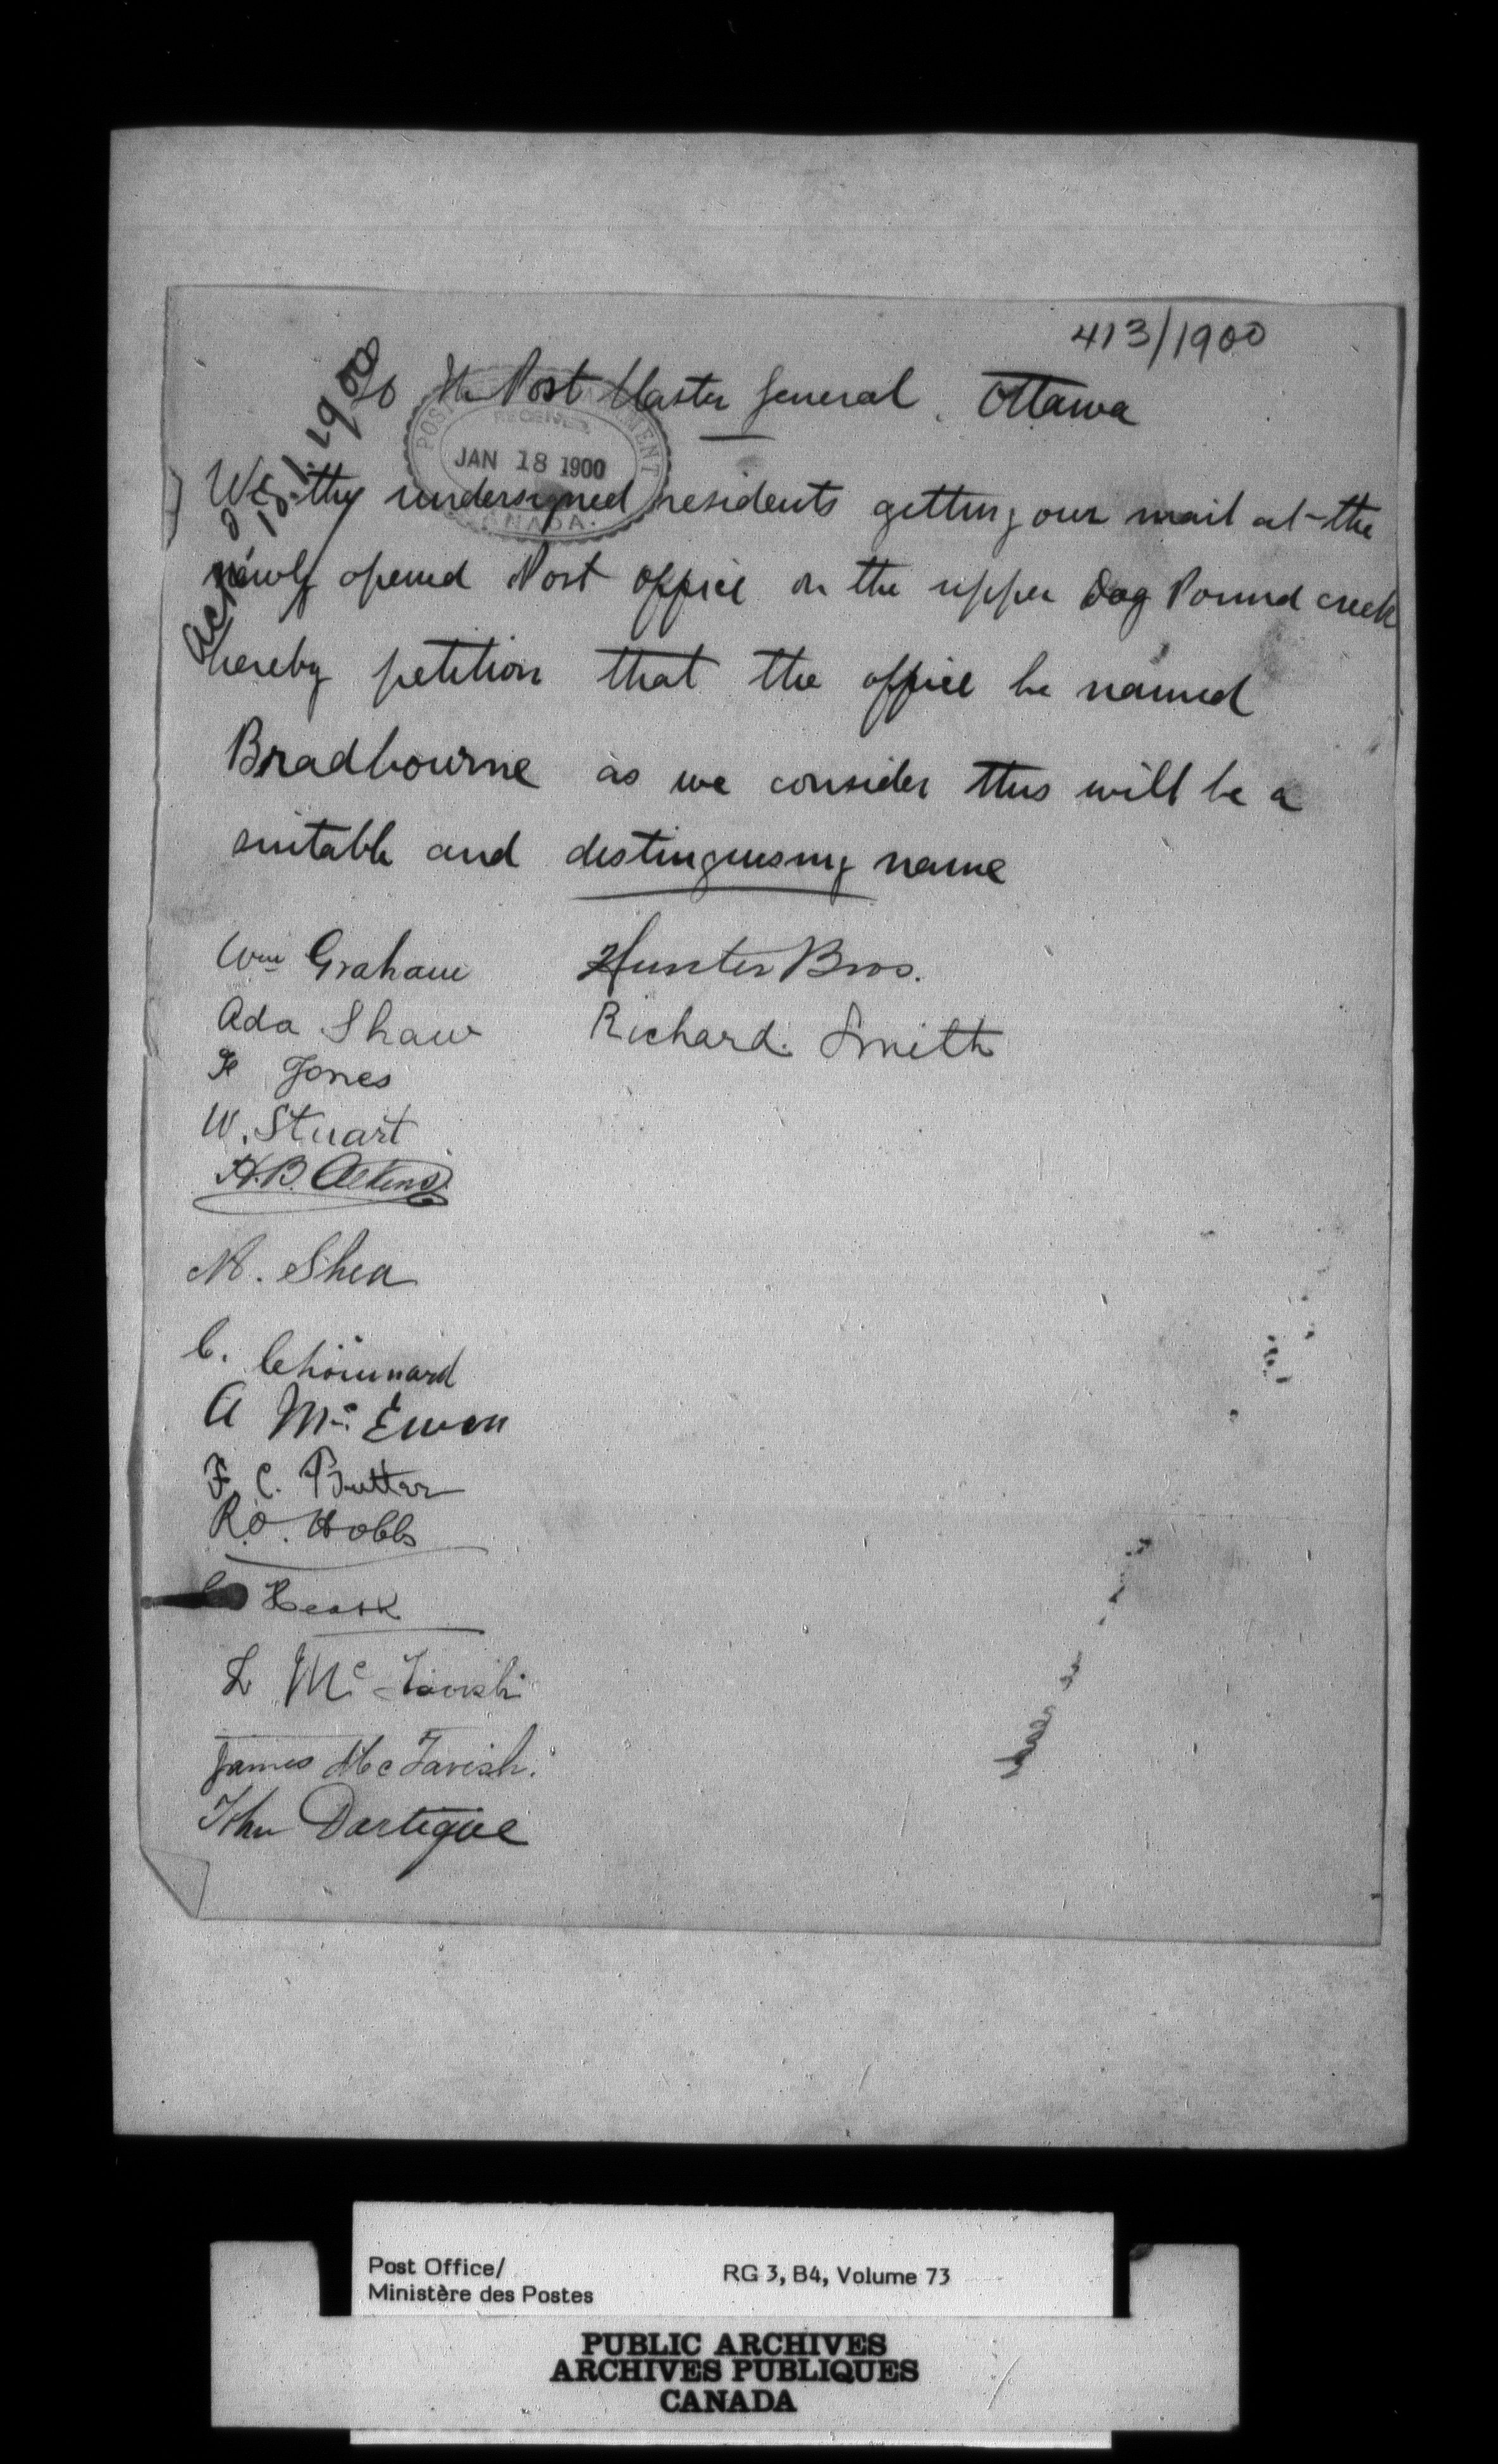 413/1900
To The Post Master General, Ottawa
POST RECEIVED
JAN 18 1900
CANADA.
We the undersigned residents getting our mail at the
newly opened Post office on the upper Dog Pound creek
hereby petition that the office be named
Bradbourne as we consider this will be a
suitable and distinguising name
Wm Graham Hunter Bros.
Ada Shaw Richard. Smith
Jones
W. Stuart
H.B. Atkins
Shea
C. Chouinnard
A Mc Ewen
F. C. Buttar
R.O. Hobbs
L Mc Tavish
James McTavish.
John Dartique
Post Office/ RG 3, B4, Volume 73
Ministère des Postes
PUBLIC ARCHIVES
ARCHIVES PUBLIQUES
CANADA